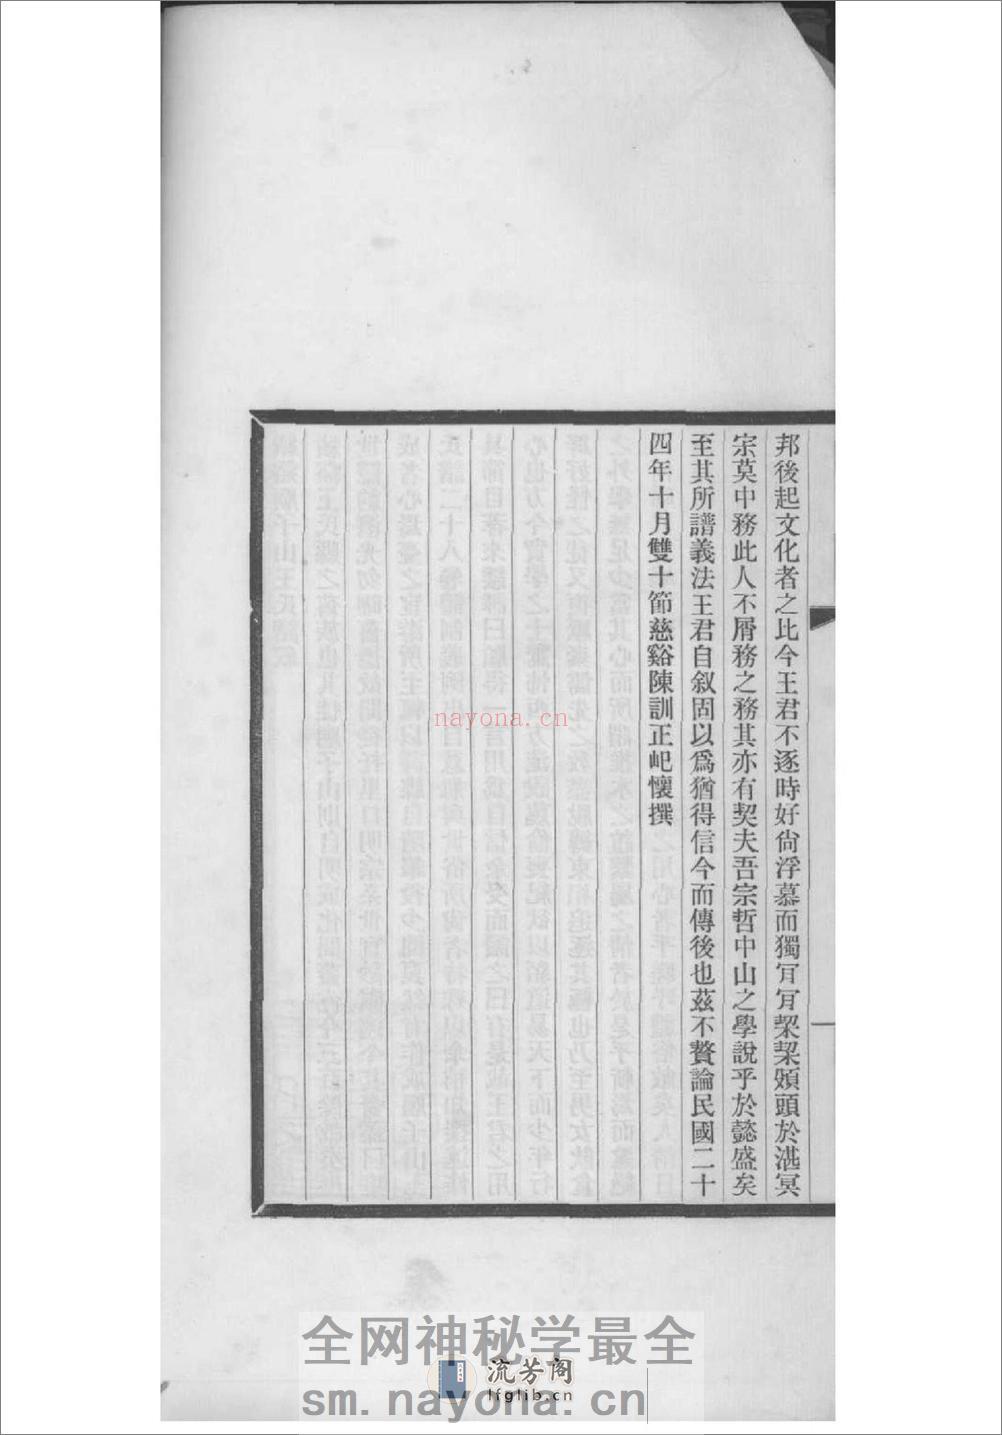 邦後起文化者之比今王君不逐時好尙浮慕而獨肎肎栔栔頫頭於湛冥
宗莫中務此人不屑務之務其亦有契夫吾宗哲中山之學說乎於懿盛矣
至其所譜義法王君自叙固以爲猶得信今而傳後也茲不贅論民國二十
四年十月雙十節慈谿陳訓正屺懷撰
一
nayona.cn
全网神秘学最全
流芳阁
lfglib.cn
sm.nayona.cn